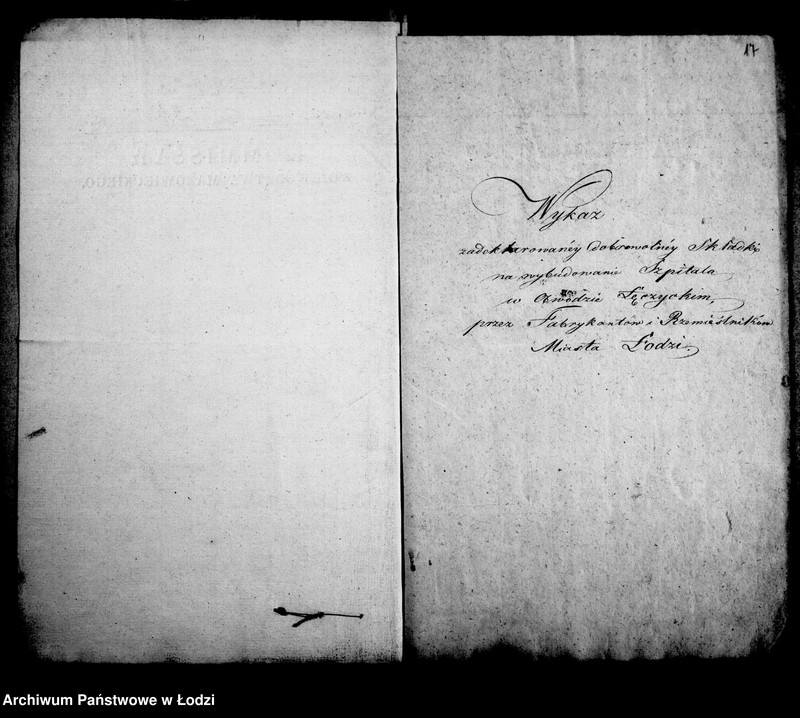 17
Wykaz
zadeklarowanéy dobrowolnéy Składki
na wybudowanie Szpitala
w Obwodzie Łęczyckim,
przez Fabrykantów i Rzemieślników
Miasta Łodzi.
Archiwum Państwowe w Łodzi